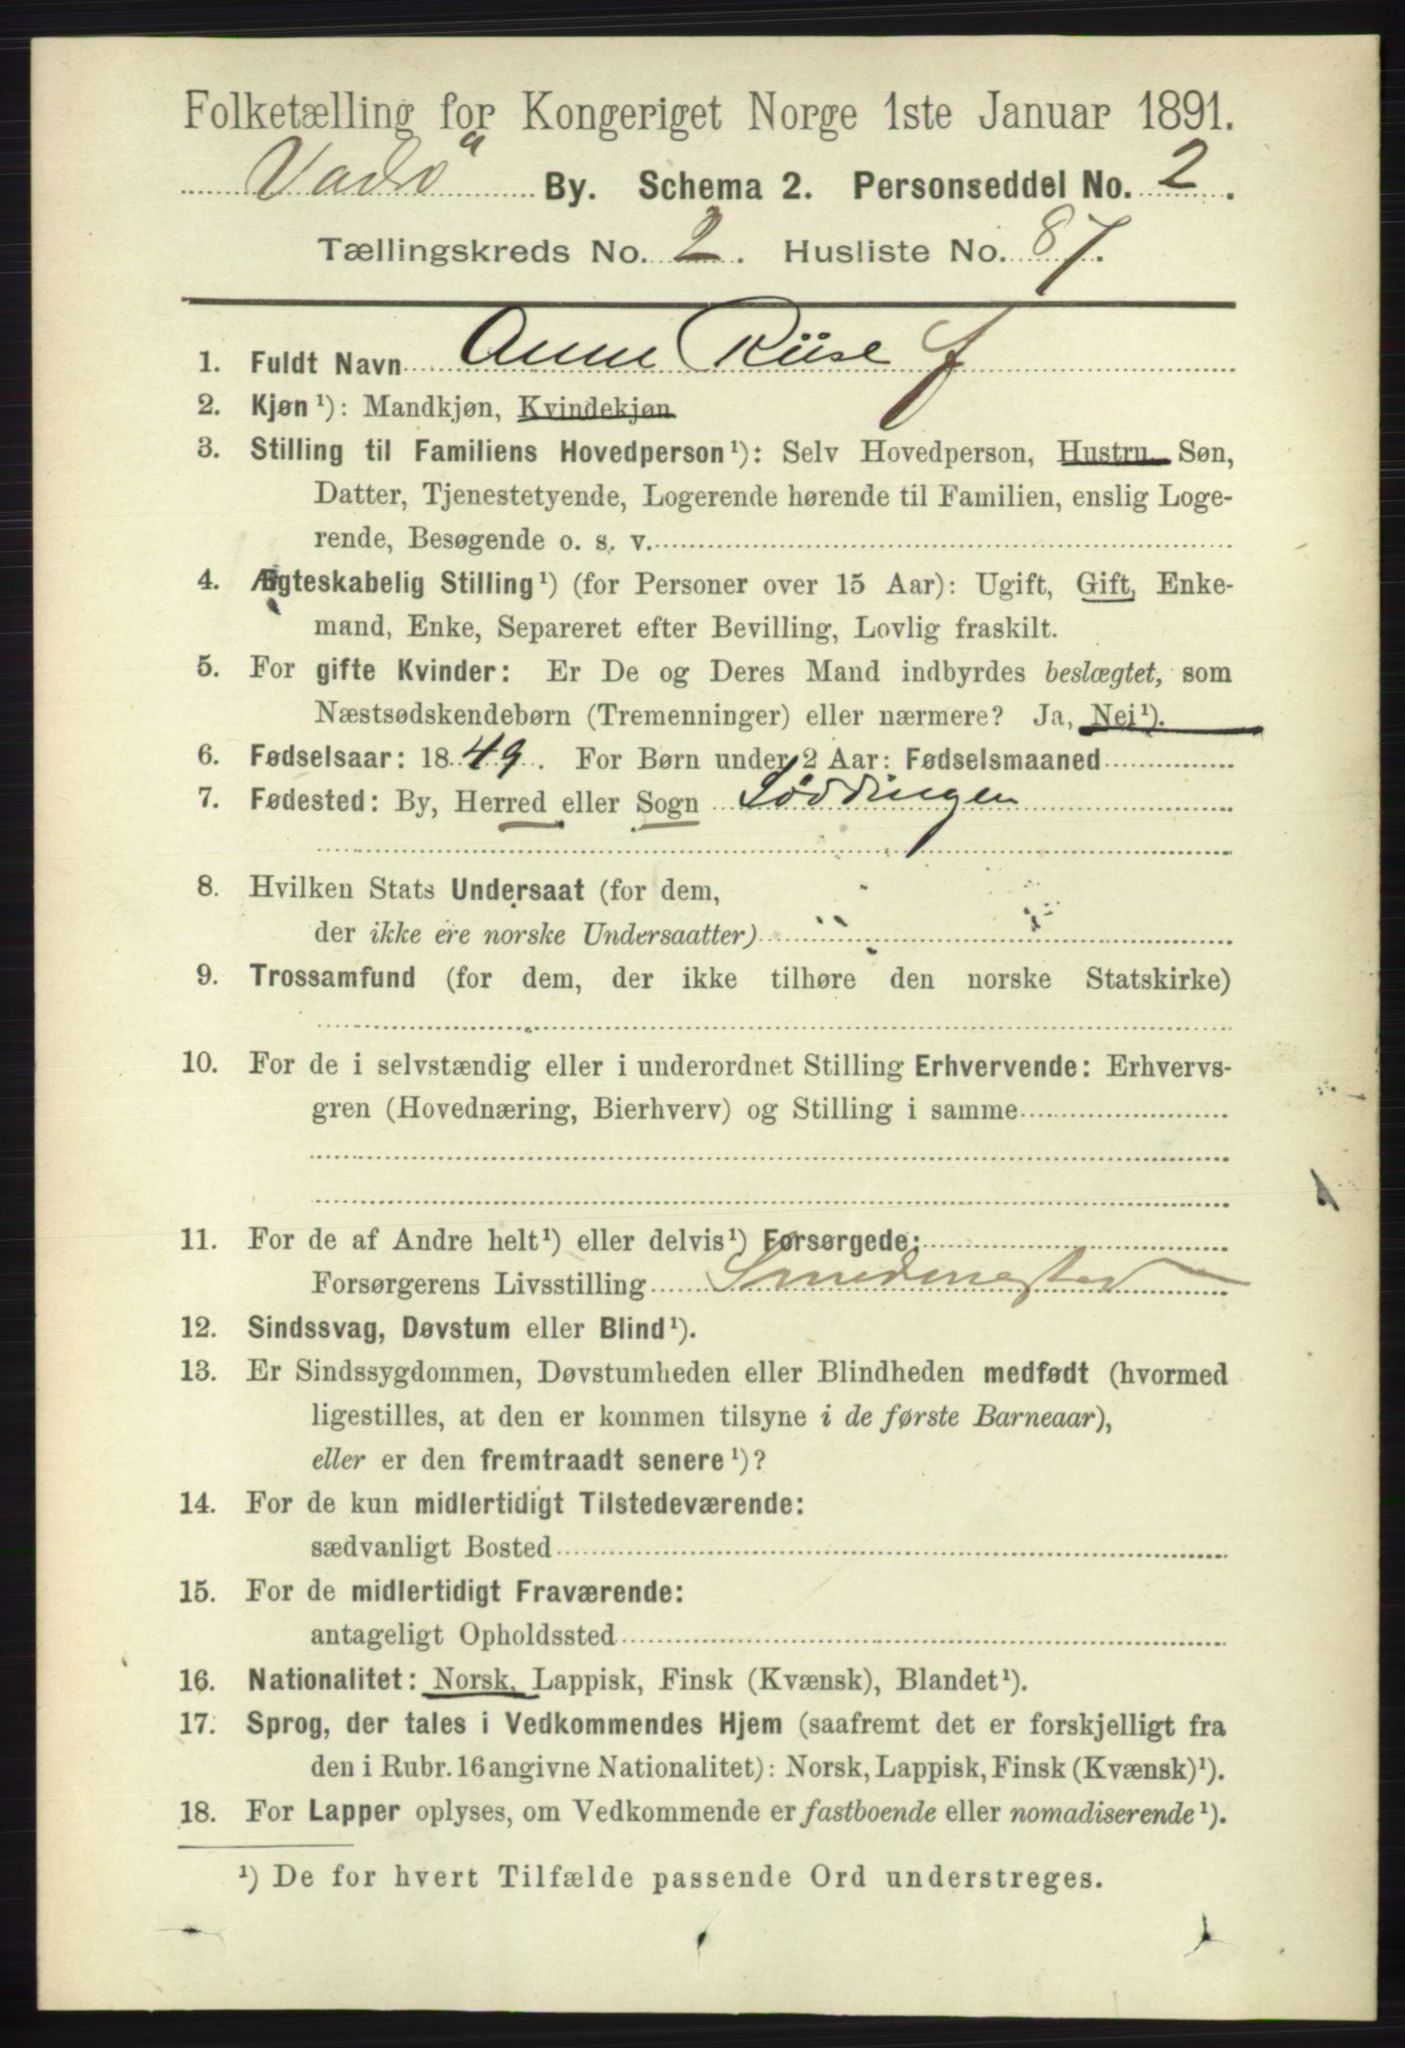 Folketælling for Kongeriget Norge 1ste Januar 1891.
Vadsö By. Schema 2. Personseddel No. 2.
Tællingskreds No. 2. Husliste No. 87.
1. Fuldt Navn Anne Riise f
2. Kjøn¹): Mandkjøn, Kvindekjøn
3. Stilling til Familiens Hovedperson¹): Selv Hovedperson, Hustru, Søn,
Datter, Tjenestetyende, Logerende hørende til Familien, enslig Loge-
rende, Besøgende o. s. v.
4. Ægteskabelig Stilling¹) (for Personer over 15 Aar): Ugift, Gift, Enke-
mand, Enke, Separeret efter Bevilling, Lovlig fraskilt.
5. For gifte Kvinder: Er De og Deres Mand indbyrdes beslægtet, som
Næstsødskendebørn (Tremenninger) eller nærmere? Ja, Nei¹).
6. Fødselsaar: 1849. For Børn under 2 Aar: Fødselsmaaned
7. Fødested: By, Herred eller Sogn Løddingen
8. Hvilken Stats Undersaat (for dem,
der ikke ere norske Undersaatter)
9. Trossamfund (for dem, der ikke tilhøre den norske Statskirke)
10. For de i selvstændig eller i underordnet Stilling Erhvervende: Erhvervs-
gren (Hovednæring, Bierhverv) og Stilling i samme
11. For de af Andre helt¹) eller delvis¹) Forsørgede:
Forsørgerens Livsstilling Smedmester
12. Sindssvag, Døvstum eller Blind¹).
13. Er Sindssygdommen, Døvstumheden eller Blindheden medfødt (hvormed
ligestilles, at den er kommen tilsyne i de første Barneaar),
eller er den fremtraadt senere¹)?
14. For de kun midlertidigt Tilstedeværende:
sædvanligt Bosted
15. For de midlertidigt Fraværende:
antageligt Opholdssted
16. Nationalitet: Norsk, Lappisk, Finsk (Kvænsk), Blandet¹).
17. Sprog, der tales i Vedkommendes Hjem (saafremt det er forskjelligt fra
den i Rubr. 16 angivne Nationalitet): Norsk, Lappisk, Finsk (Kvænsk)¹).
18. For Lapper oplyses, om Vedkommende er fastboende eller nomadiserende¹).
¹) De for hvert Tilfælde passende Ord understreges.